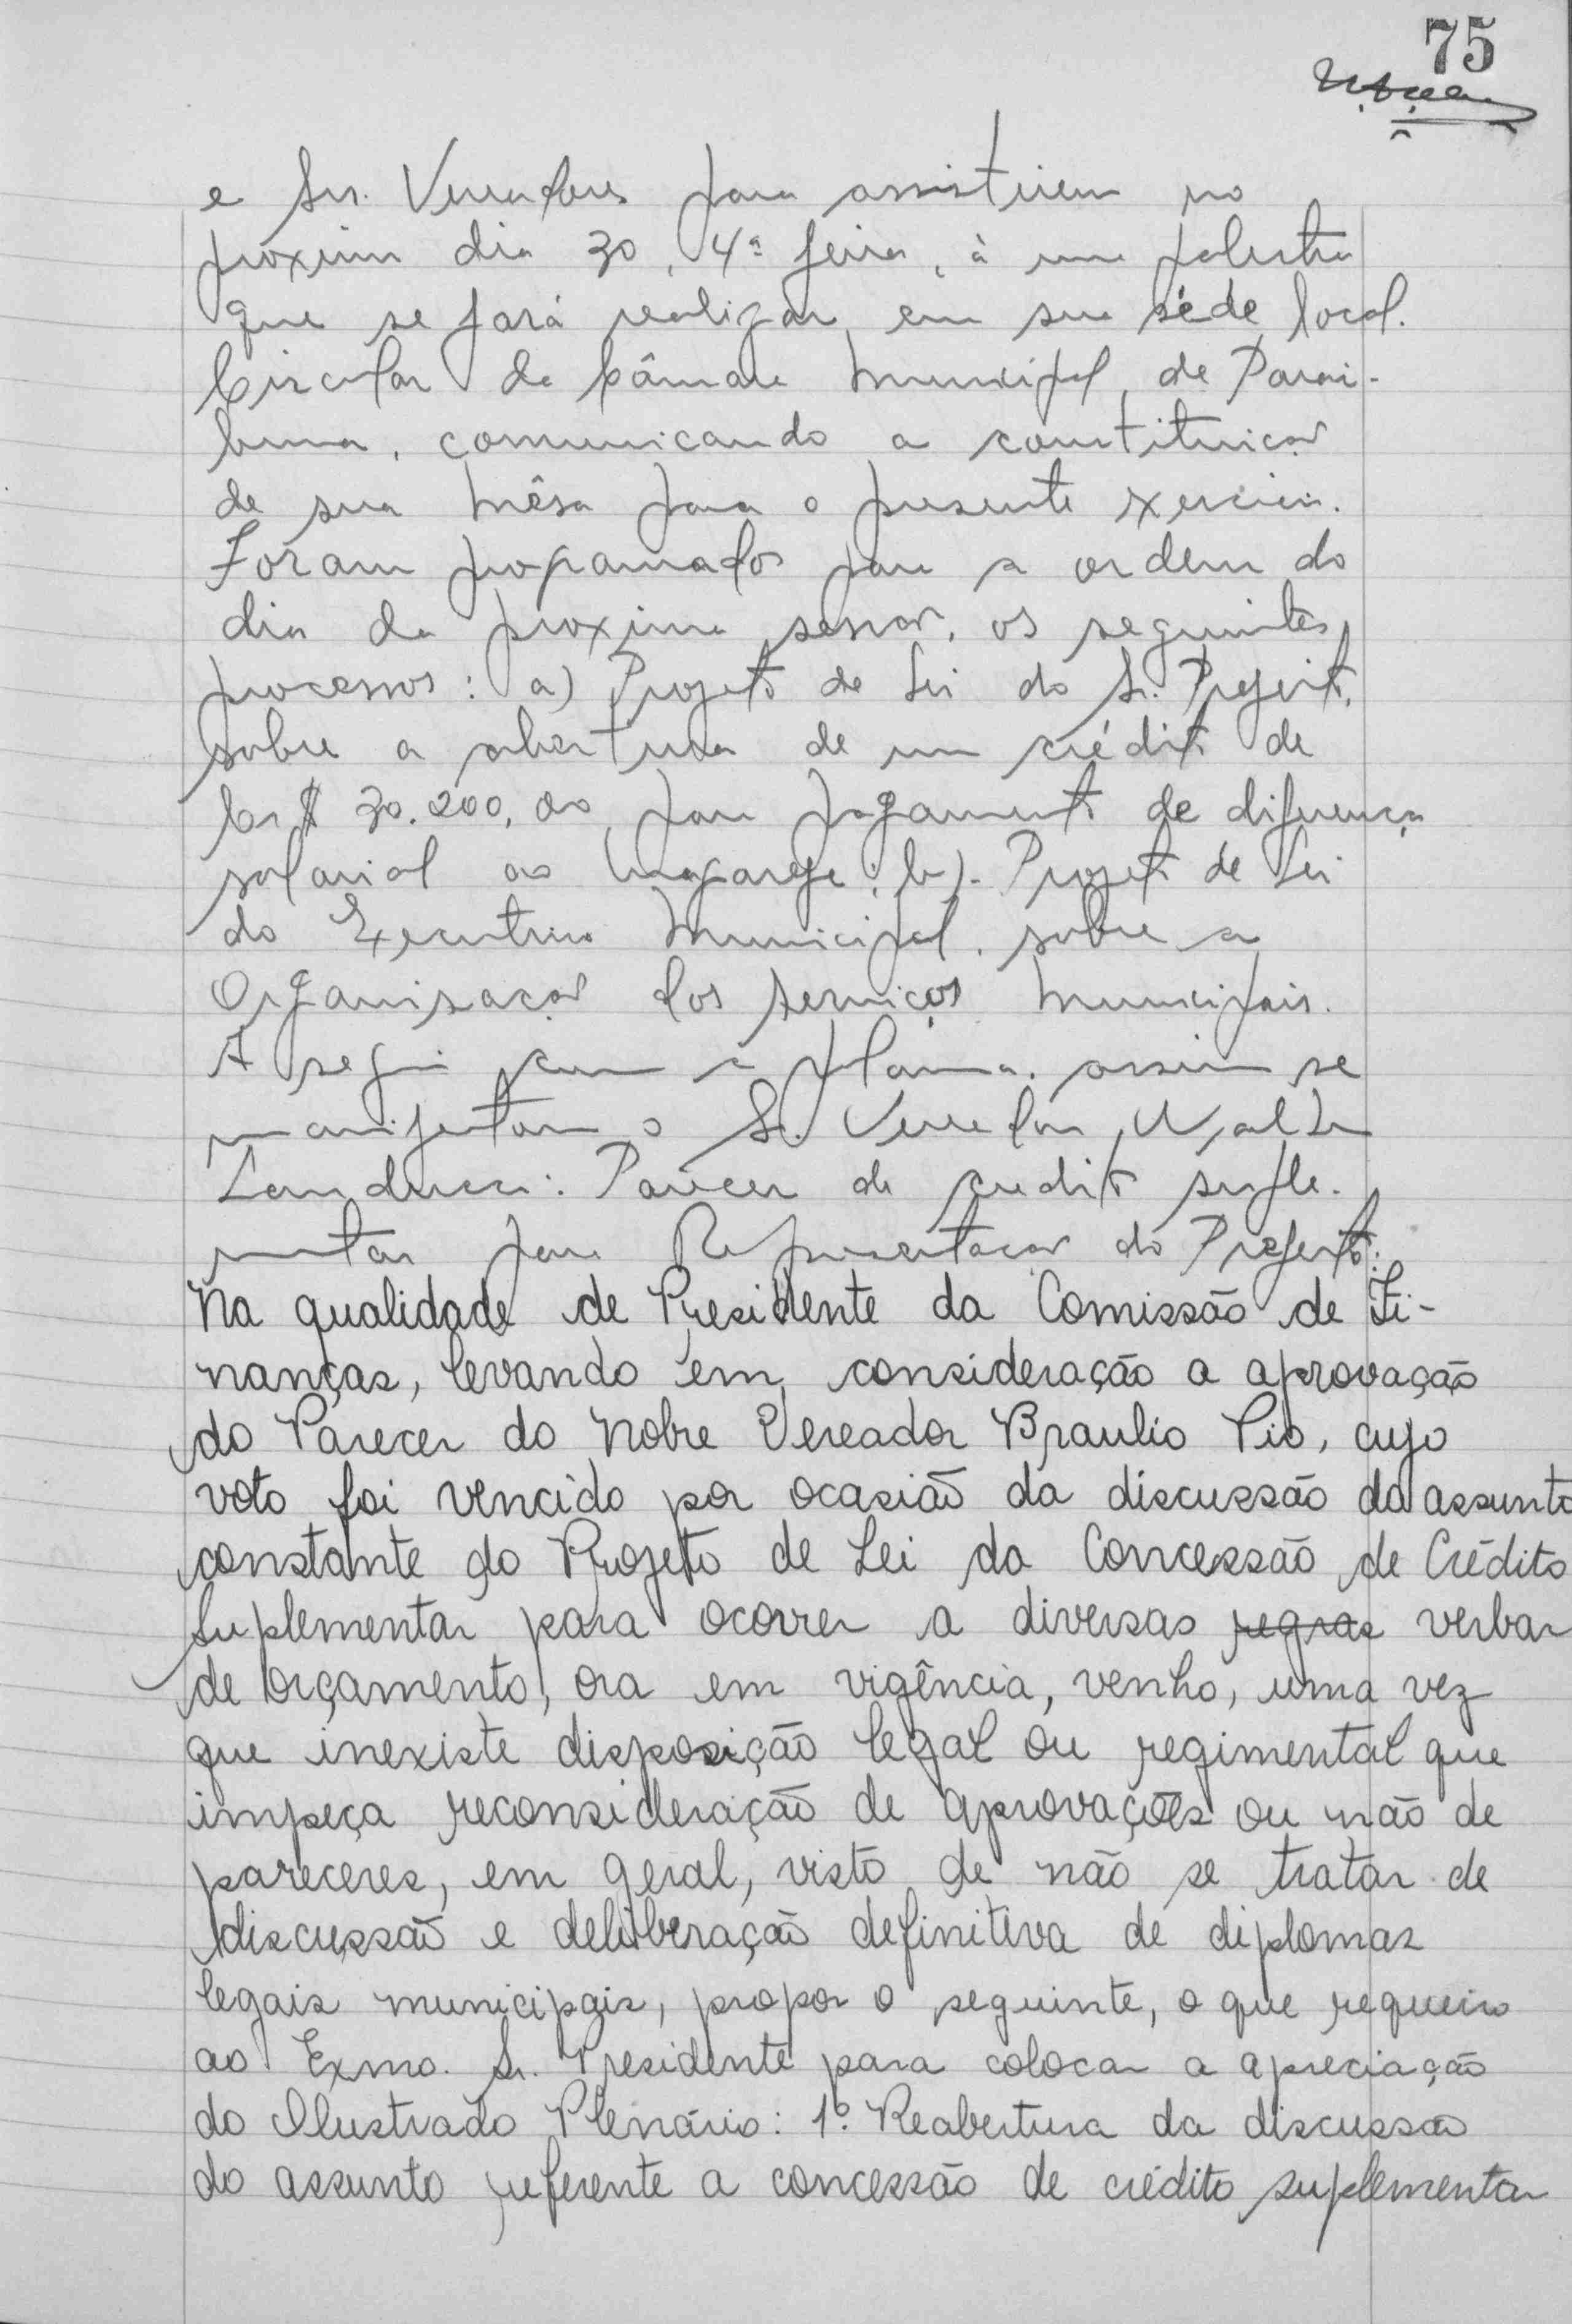 75
e Srs. Vereadores para assistirem no
proximo dia 30, 4ª feira, à uma palestra
que se fará realizar em sua séde local.
Circular da Câmara Municipal de Parai-
buna, comunicando a constituição
de sua Mêsa para o presente exercicio.
Foram programados para a ordem do
dia da proxima sessão, os seguintes
processos: a) Projeto de Lei do Sr. Prefeito,
sobre a abertura de um crédito de
Cr$ 30.200,00 para pagamento de diferença
salarial ao Magarefe; b)- Projeto de Lei
do Executivo Municipal, sobre a
Organisação dos serviços Municipais.
A seguir com a palavra, assim se
manifestou o Sr. Vereador Walter
Landucci: Parecer de credito suple-
mentar para Representação do Prefeito:
Na qualidade de Presidente da Comissão de Fi-
nanças, levando em consideração a aprovação
do Parecer do Nobre Vereador Braulio Pio, cujo
voto foi vencido por ocasião da discussão do assunto
constante do Projeto de Lei da Concessão de Crédito
Suplementar para ocorrer a diversas regras verbas
de orçamento, ora em vigência, venho, uma vez
que inexiste disposição legal ou regimental que
impeça reconsideração de aprovações ou não de
pareceres, em geral, visto de não se tratar de
discussão e deliberação definitiva de diplomas
legais municipais, propor o seguinte, o que requeiro
ao Exmo. Sr. Presidente para colocar a apreciação
do Ilustrado Plenário: 1º. Reabertura da discussão
do assunto referente a concessão de crédito suplementar